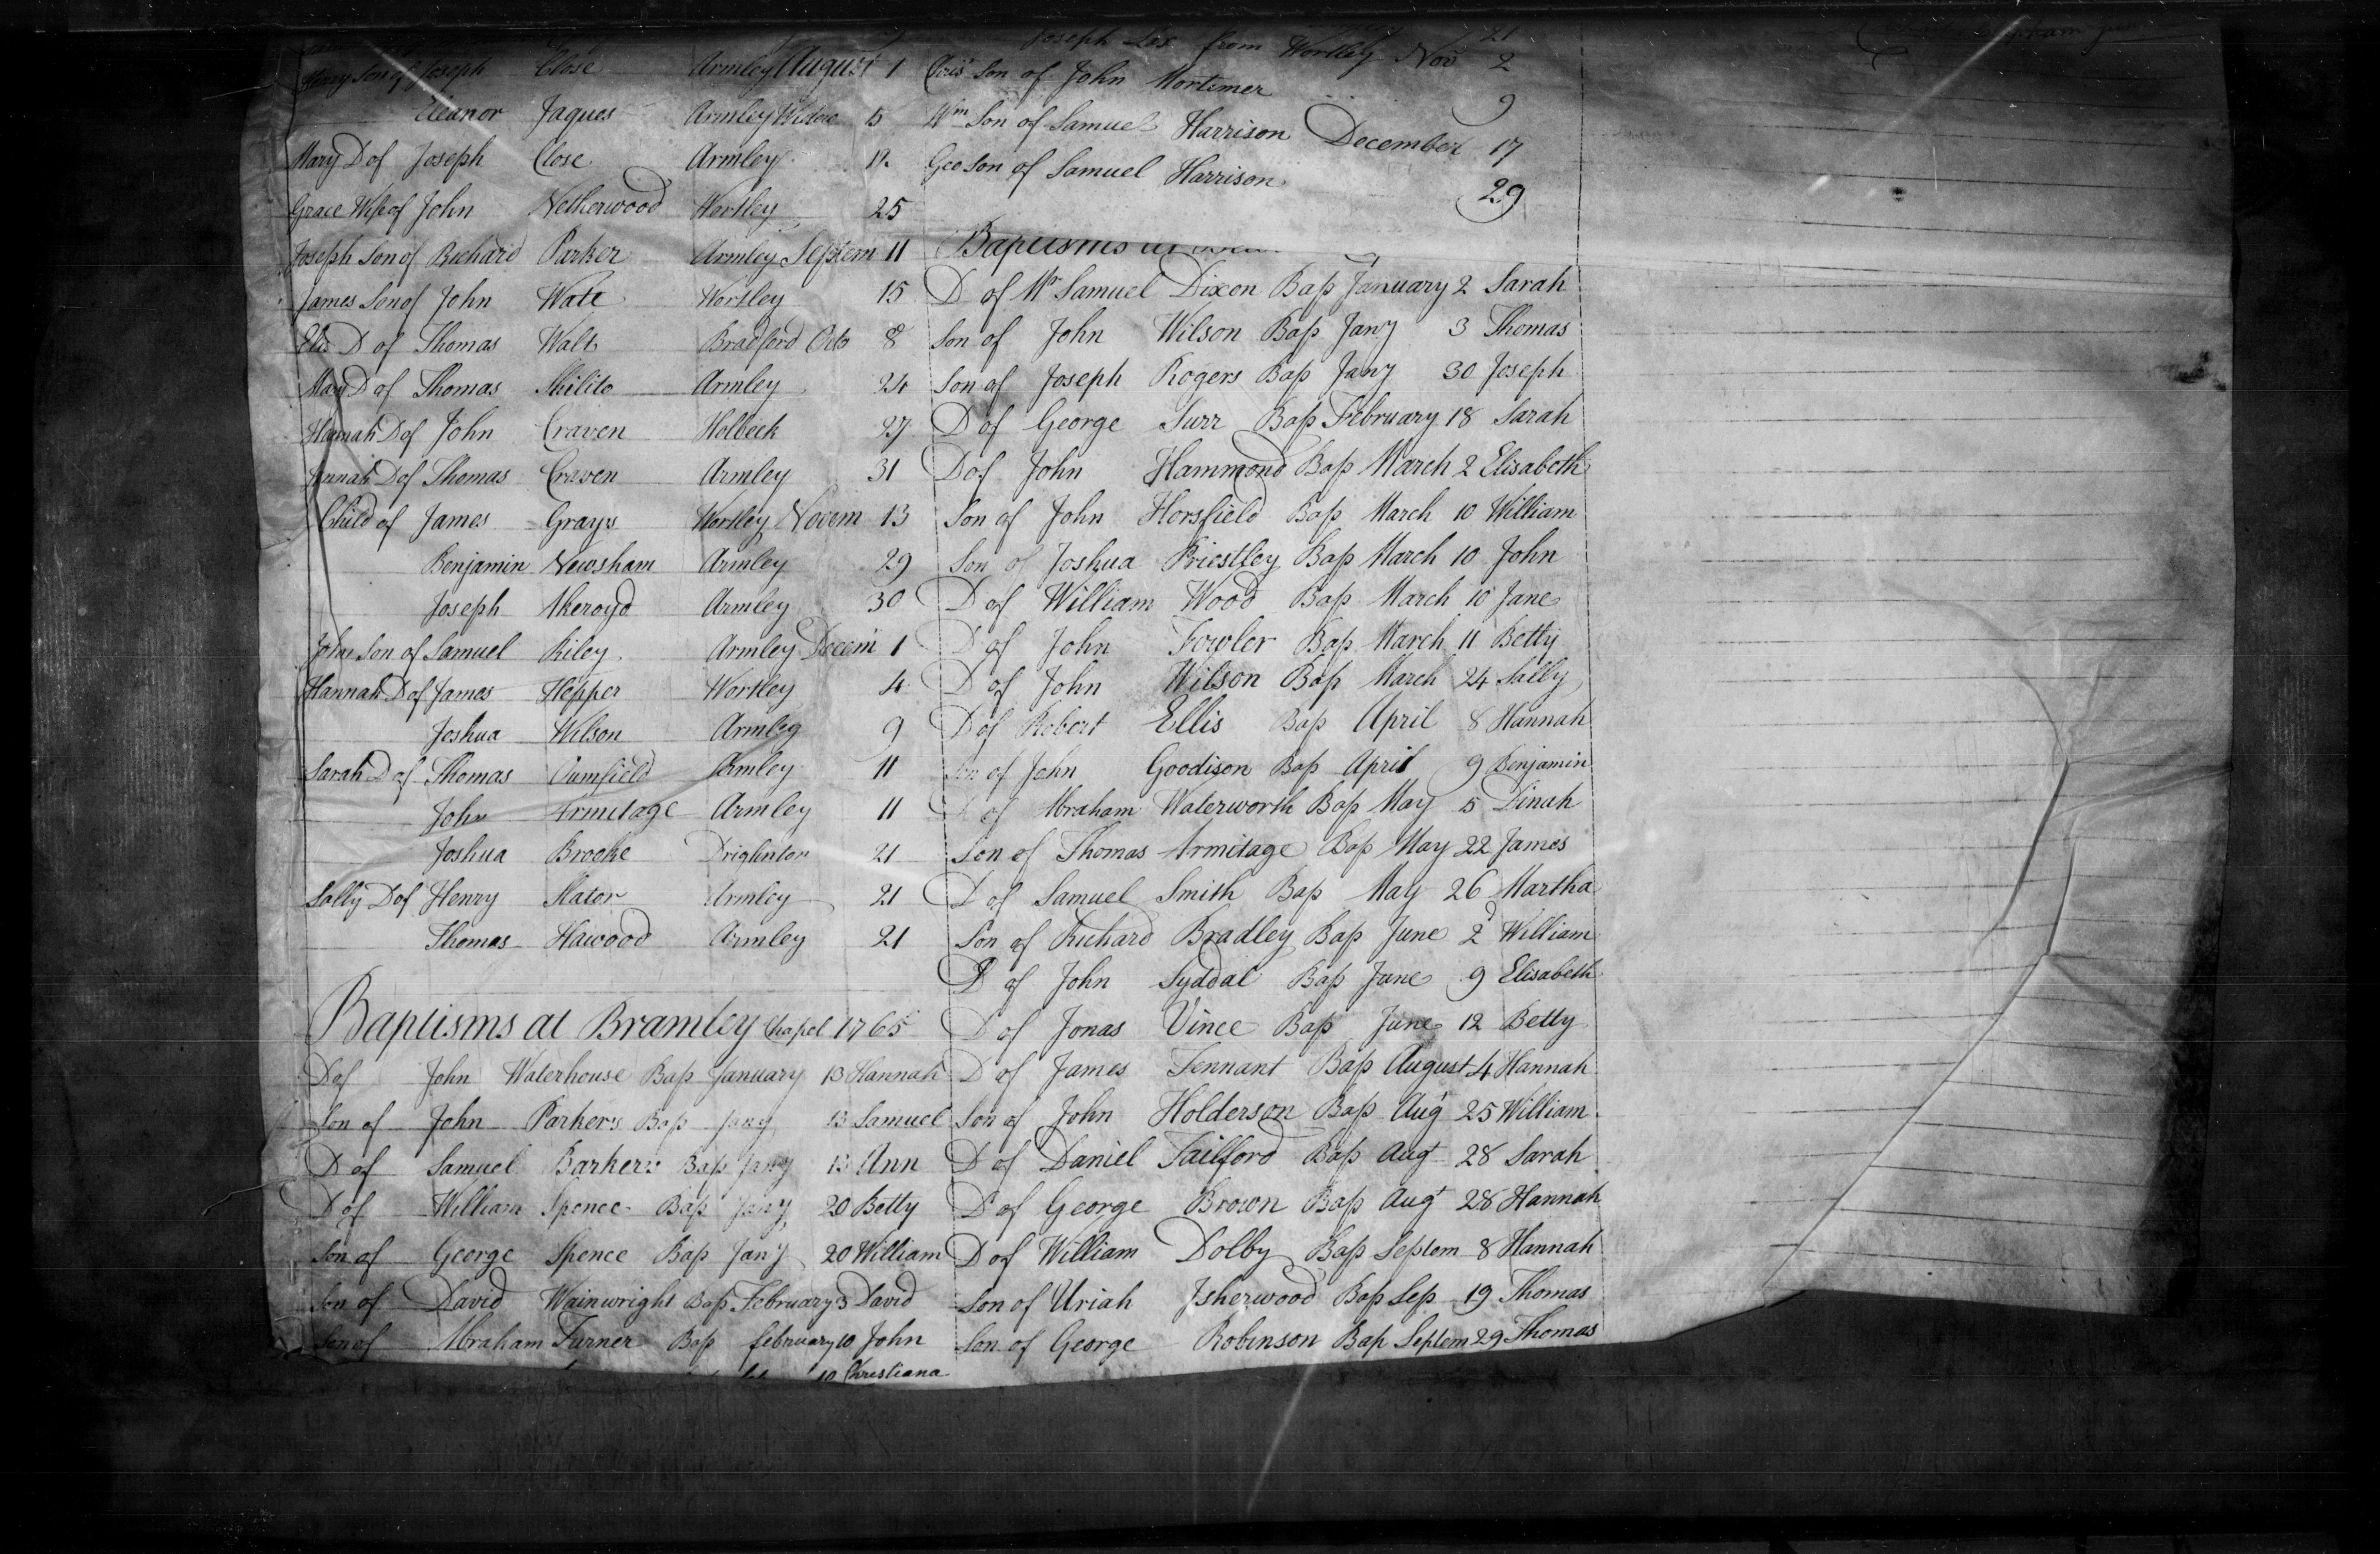 Son of Joseph Close Armley August 1
Eleanor Jaques Armley Widow 15
Mary D of Joseph Close Armley 19
Grace Wife of John Netherwood Wortley 25
Joseph Son of Richard Parker Armley Septem 11
James Son of John Wate Wortley 15
D of Thomas Walt Bradford Octo 8
Mary D of Thomas Shilito Armley 24
Hannah D of John Craven Holbeck 27
Hannah D of Thomas Craven Armley 31
Child of James Grays Wortley Novem 13
Benjamin Newsham Armley 29
Joseph Akeroyd Armley 30
John Son of Samuel Riley Armley Decem 1
Hannah D of James Hepper Wortley 4
Joshua Wilson Armley 9
Sarah D of Thomas Armley 11
John Armitage Armley 11
Joshua Brooke Drighlinton 21
Sally D of Henry Slator Armley 21
Thomas Hawood Armley 21
Baptisms at Bramley Chapel 1765
D of John Waterhouse Bap January 13 Hannah
Son of John Parkers Bap Jany 13 Samuel
D of Samuel Barkers Bap Jany 13 Ann
D of William Spence Bap Jany 20 Betty
Son of George Spence Bap Jany 20 William
Son of David Wainwright Bap February 3 David
Son of Abraham Turner Bap february 10 John
10 Christiana
21
Joseph from Wortley Nov 2
Son of John Mortimer 9
Wm Son of Samuel Harrison December 17
Geo Son of Samuel Harrison 29
Baptisms at
D of Mr Samuel Dixon Bap January 2 Sarah
Son of John Wilson Bap Jany 3 Thomas
Son of Joseph Rogers Bap Jany 30 Joseph
D of George Surr Bap February 18 Sarah
D of John Hammond Bap March 2 Elisabeth
Son of John Horsfield Bap March 10 William
Son of Joshua Priestley Bap March 10 John
D of William Wood Bap March 10 Jane
D of John Fowler Bap March 11 Betty
D of John Wilson Bap March 24 Sally
D of Robert Ellis Bap April 8 Hannah
Son of John Goodison Bap April 9 Benjamin
D of Abraham Waterworth Bap May 5 Dinah
Son of Thomas Armitage Bap May 22 James
D of Samuel Smith Bap May 26 Martha
Son of Richard Bradley Bap June 2d William
D of John Syddal Bap June 9 Elisabeth
D of Jonas Vince Bap June 12 Betty
D of James Tennant Bap August 4 Hannah
Son of John Holderson Bap Augt 25 William
D of Daniel Tailford Bap Augt 28 Sarah
D of George Brown Bap Augt 28 Hannah
D of William Dolby Bap Septem 8 Hannah
Son of Uriah Isherwood Bap Sep 19 Thomas
Son of George Robinson Bap Septem 29 Thomas